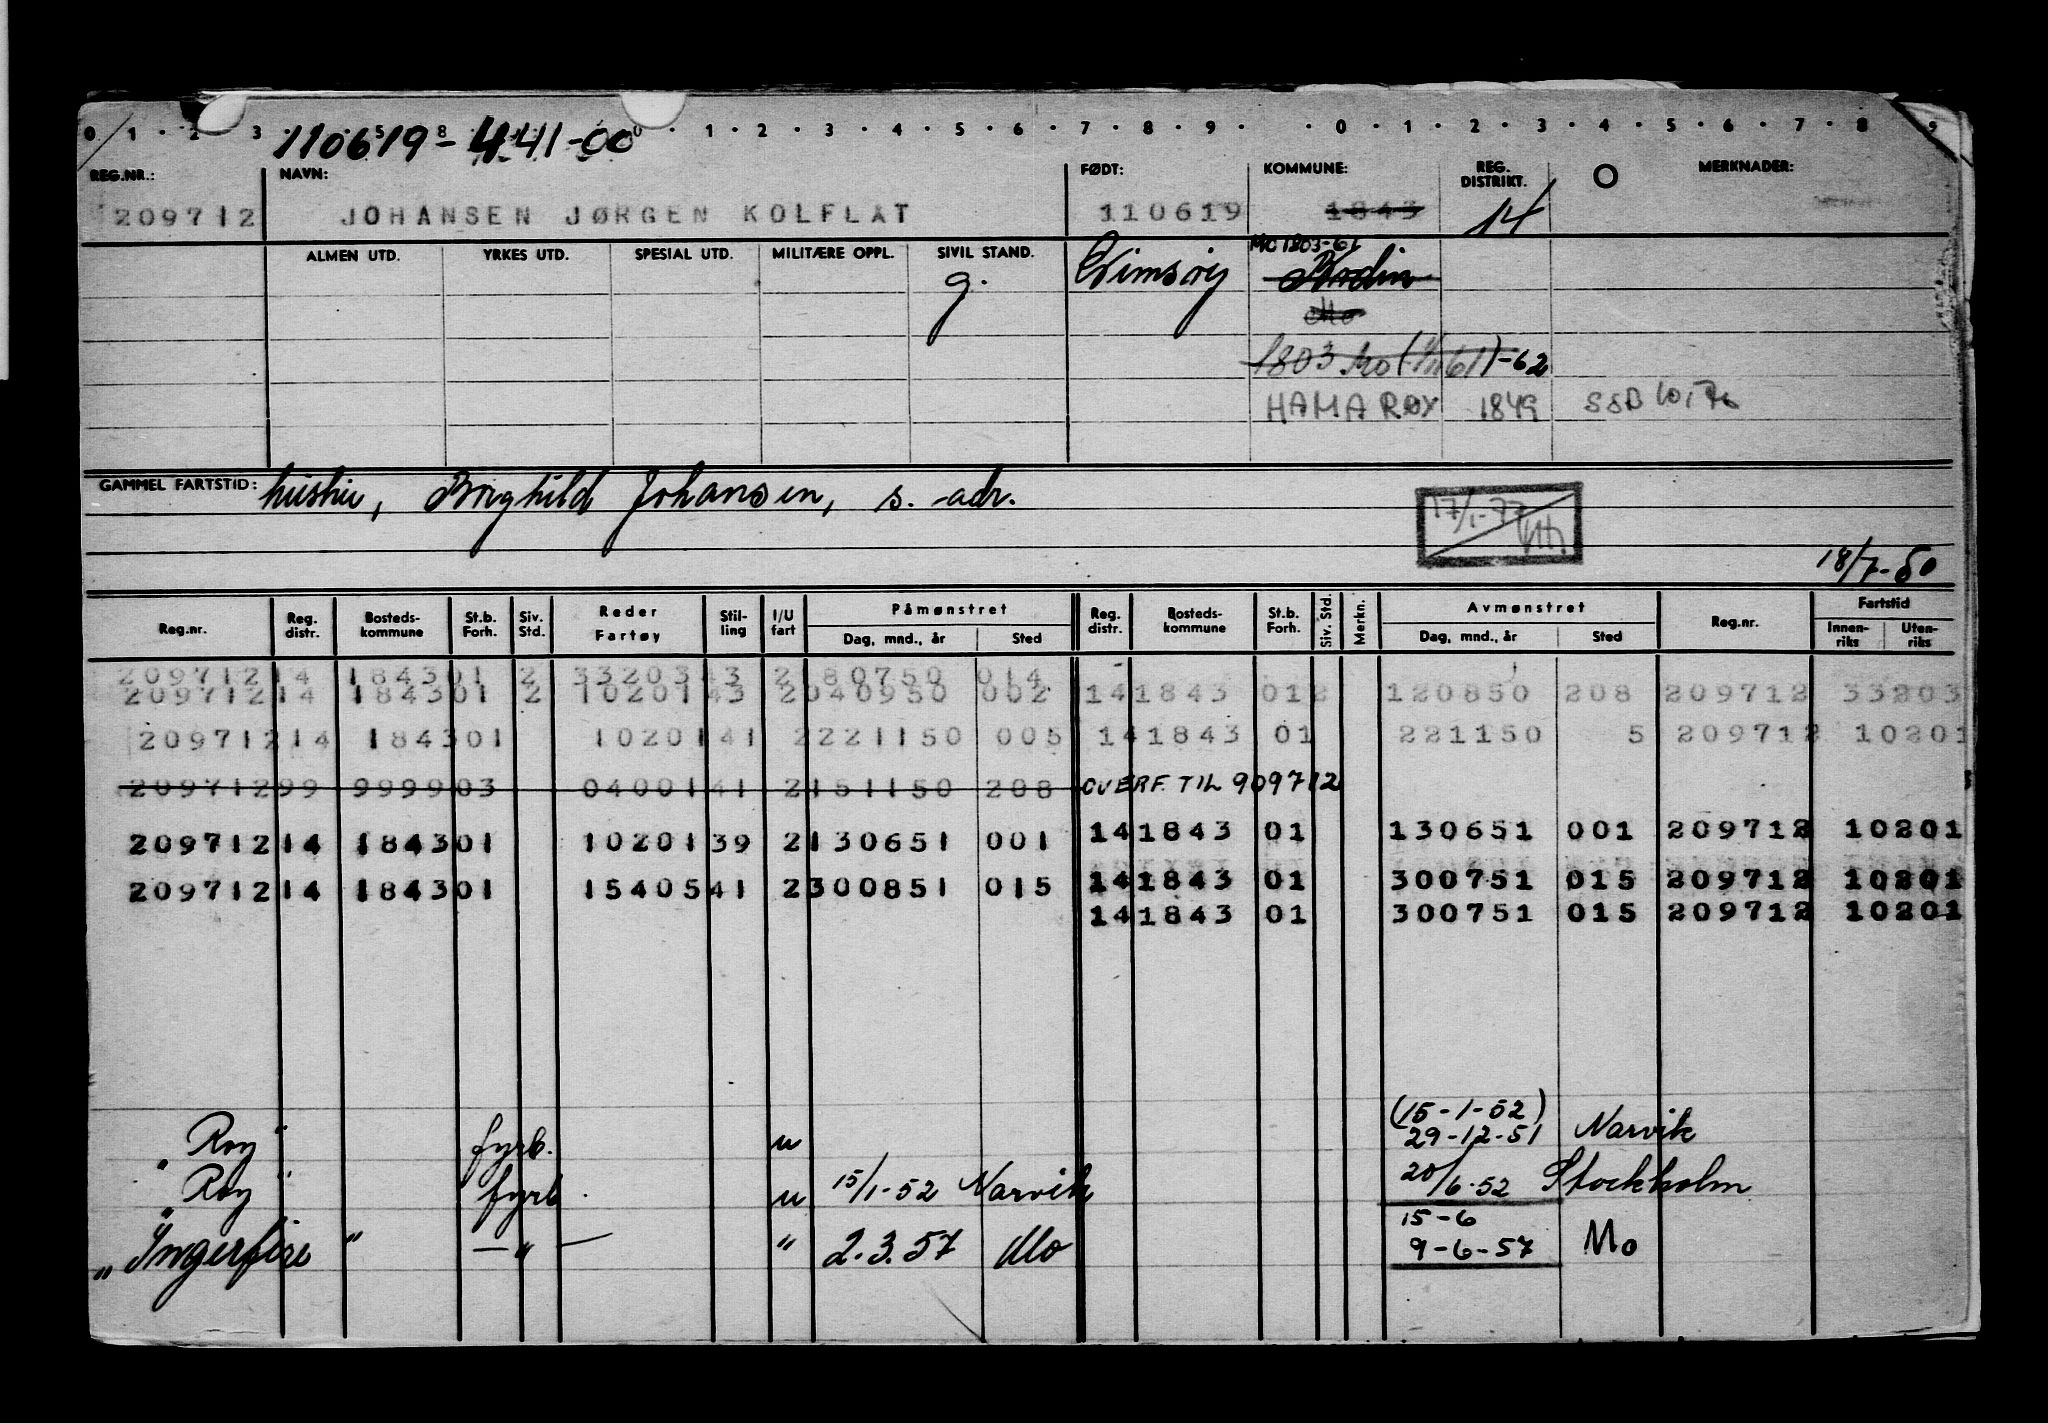 0 1 2 3 5 8 0 1 2 3 4 5 6 7 8 9 0 1 2 3 4 5 6 7 8 9
110619-441-00
REG.NR.: NAVN: FØDT: KOMMUNE: REG. DISTRIKT. MERKNADER:
209712 JOHANSEN JØRGEN KOLFLAT 110619 1843 14
ALMEN UTD. YRKES UTD. SPESIAL UTD. MILITÆRE OPPL. SIVIL STAND.
MO 1803-61
g. Gimsøy Bodin
Mo
1803 Mo (1/11 61)-62
HAMARØY 1849 SSB
GAMMEL FARTSTID: hustru, Borghild Johansen, s. adr.
17/1-77
18/7-50
Reg.nr. Reg. distr. Bosteds-kommune St.b. Forh. Siv. Std. Reder Fartøy Stil-ling I/U fart Påmønstret Dag, mnd., år Sted Reg. distr. Bosteds-kommune St.b. Forh. Siv. Std. Merkn. Avmønstret Dag, mnd., år Sted Reg.nr. Fartstid Innen-riks Uten-riks
209712 14 1843 01 2 33203 43 2 180750 014
209712 14 1843 01 2 10201 43 2 040950 002 14 1843 01 2 120850 208 209712 33203
209712 14 1843 01 10201 41 2 221150 005 14 1843 01 221150 5 209712 10201
209712 99 9999 03 04001 41 2 151150 208 OVERF. TIL 909712
209712 14 1843 01 10201 39 2 130651 001 14 1843 01 130651 001 209712 10201
209712 14 1843 01 15405 41 2 300851 015 14 1843 01 300751 015 209712 10201
14 1843 01 300751 015 209712 10201
(15-1-52)
"Roy" fyrb. u 29-12-51 Narvik
"Roy" fyrb. u 15/1-52 Narvik 20/6-52 Stockholm
15-6
"Ingerfire" — " — " 2.3.57 Mo 9-6-57 Mo